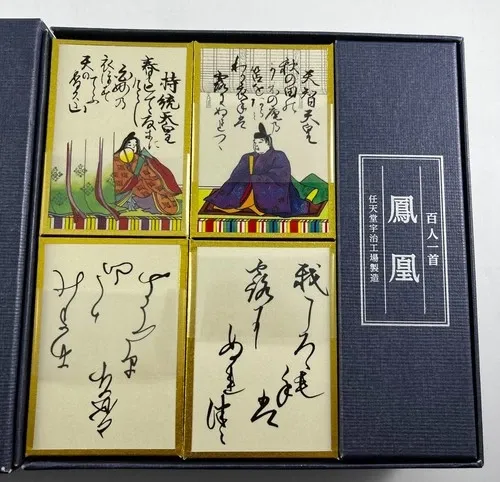 百人一首
鳳凰
任天堂宇治工場製造
天智天皇
秋の田の
かりほの庵の
苫をあらみ
わか衣手は
露にぬれつゝ
持統天皇
春過て夏来に
けらし
白妙の
衣ほす
てふ
天の
露に
ぬれつゝ